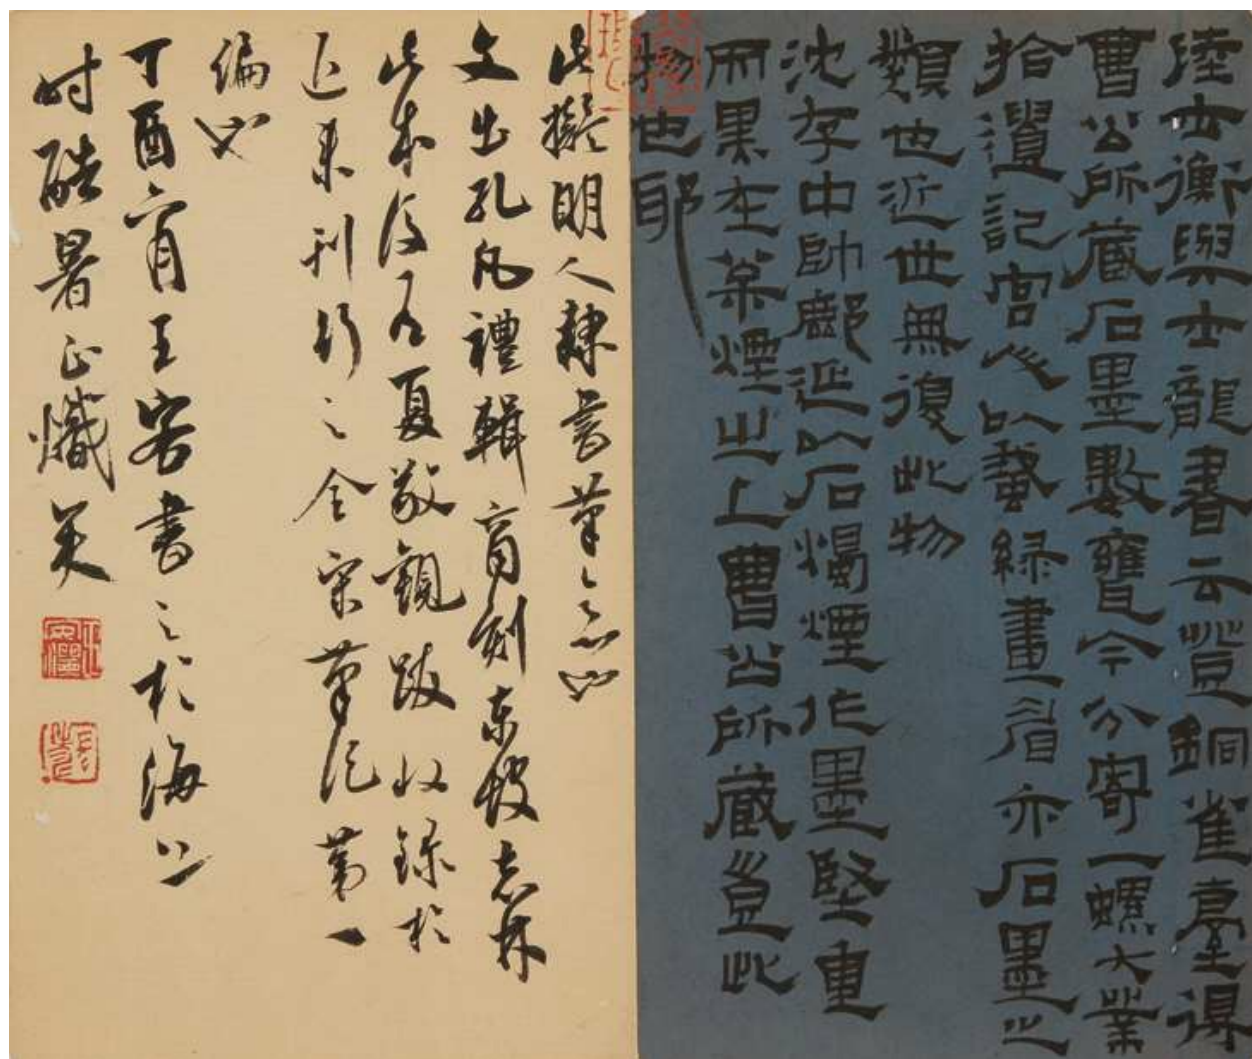 陸士衡與士龍書云登銅雀臺得
曹公所藏石墨數甕今分寄一螺大業
拾遺記宮人以蛾綠畫眉亦石墨之
類也近世無復此物
沈存中帥鄜延以石燭煙作墨堅重
而黑在松煙之上曹公所藏豈此
物也耶
此擬明人隸書筆意也
文出孔凡禮輯商刻東坡志林
此本後有夏敬觀跋收錄於
近來刊行之全宋筆記第一
編也
丁酉六月王客書之於海上
时酷暑正熾